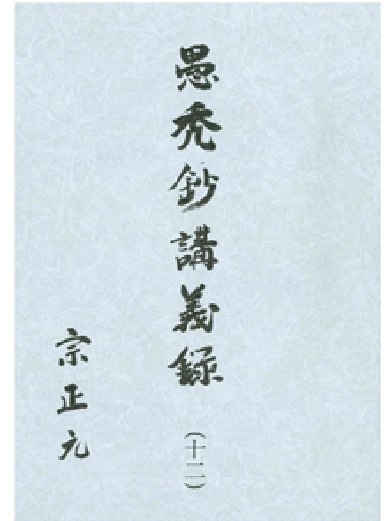 愚禿鈔講義録
(十二)
宗正元